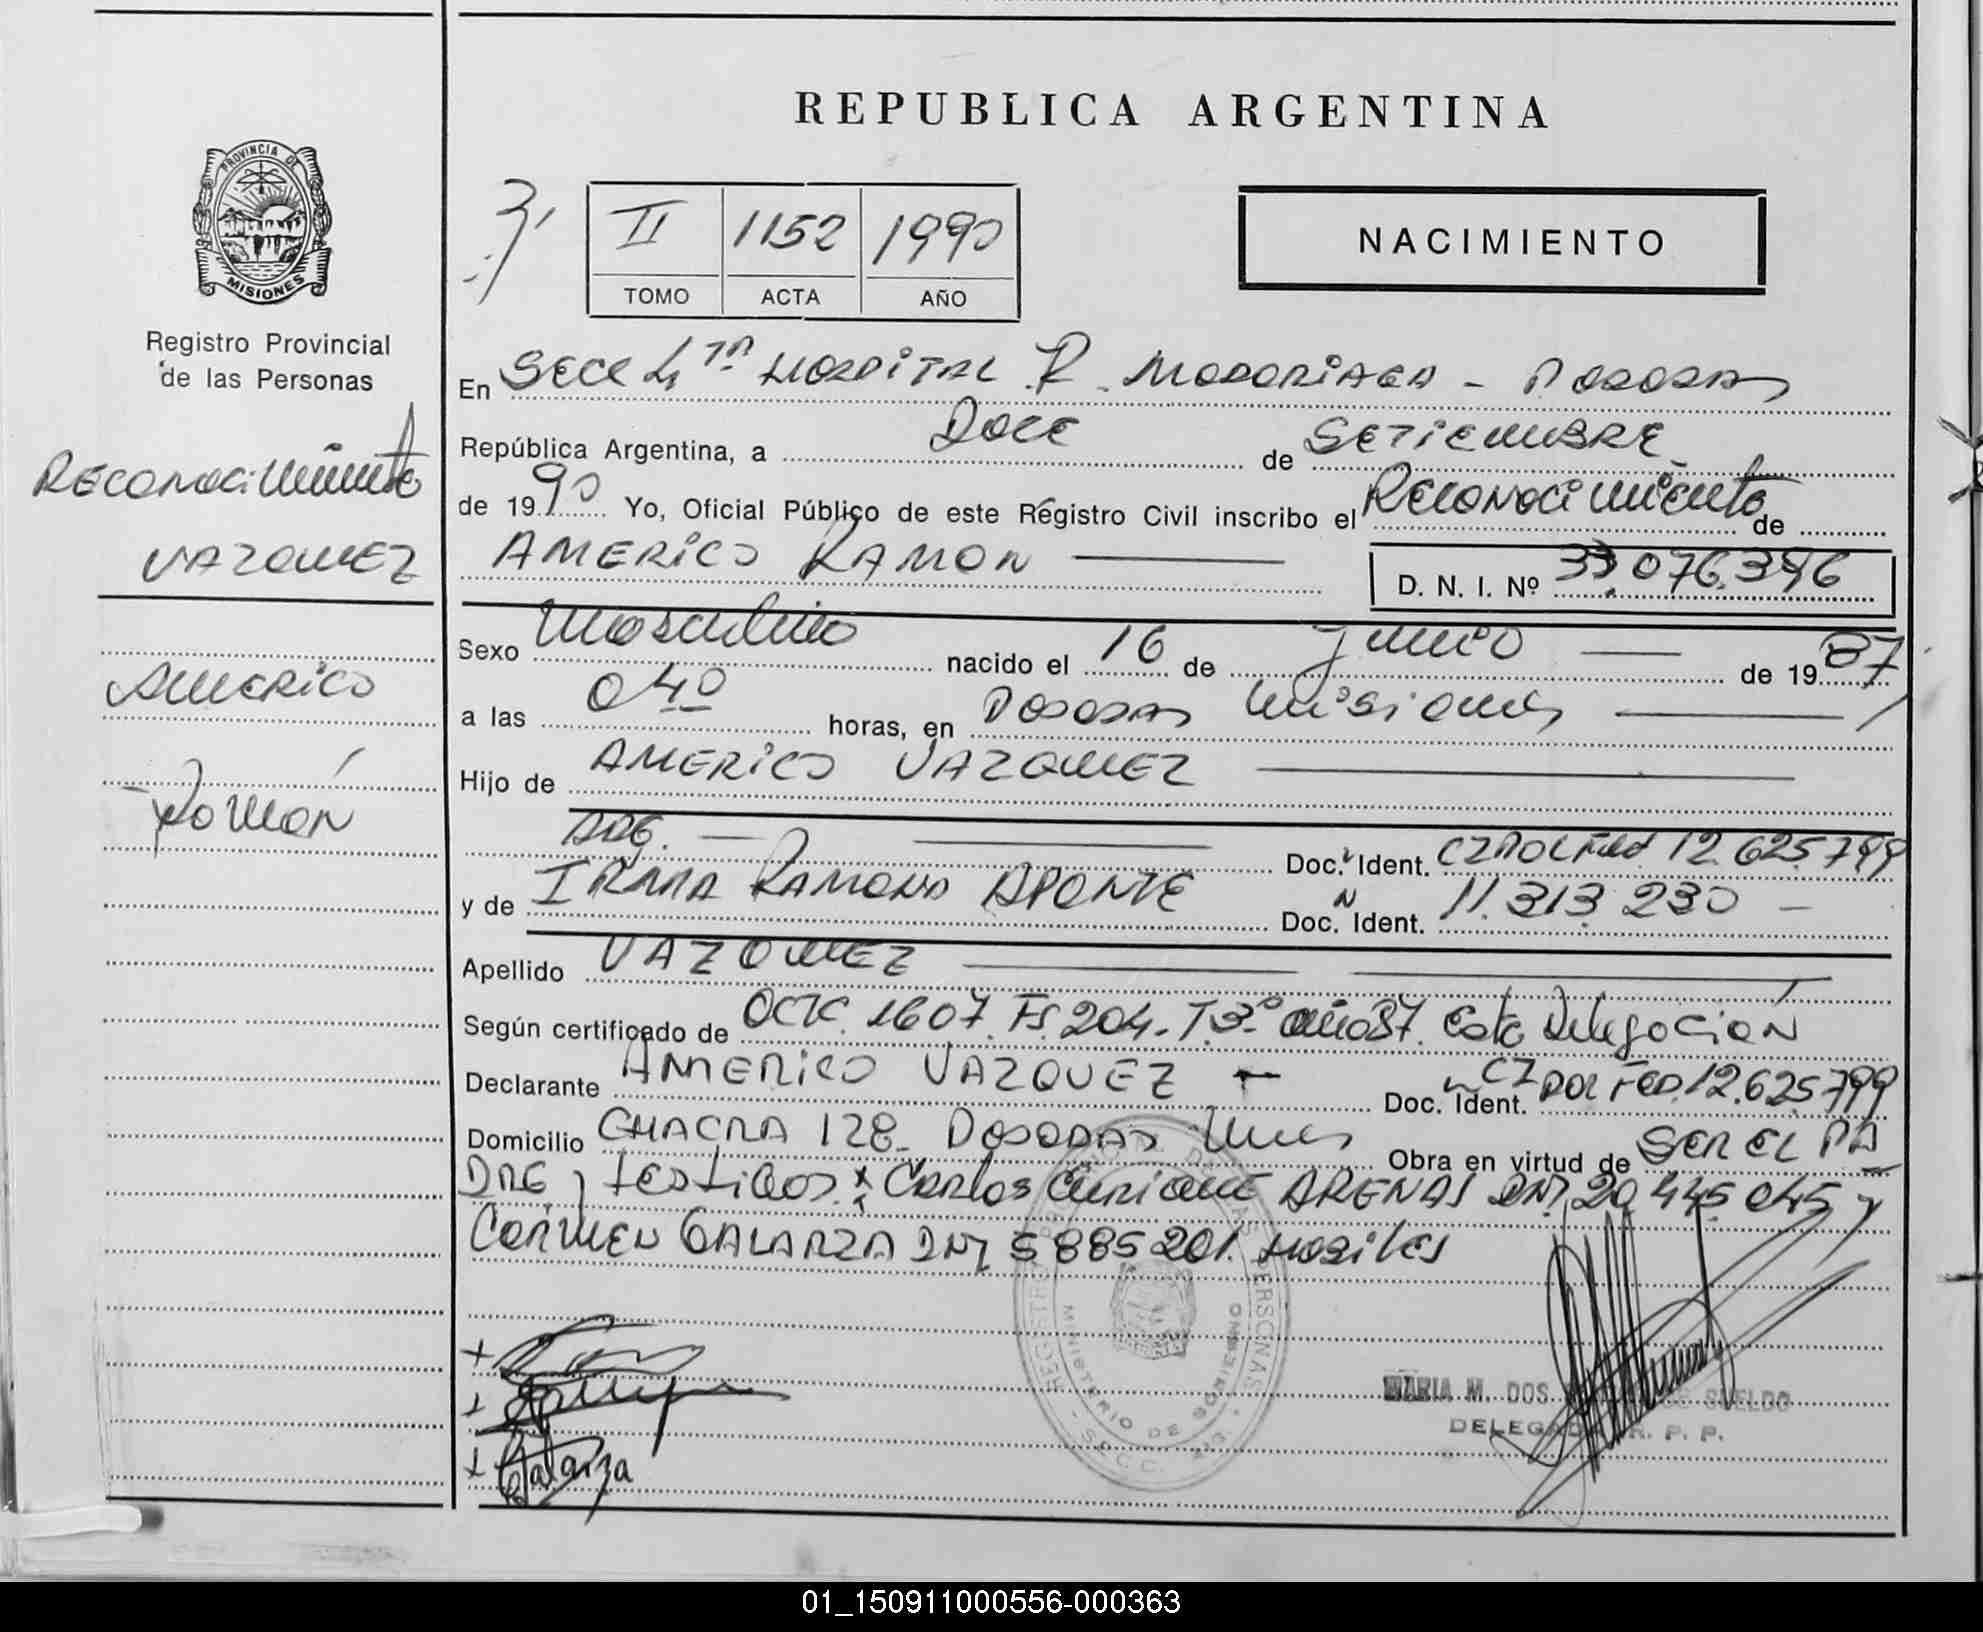 REPUBLICA ARGENTINA
PROVINCIA DE
MISIONES
Registro Provincial
de las Personas
Reconocimiento
VAZQUEZ
Americo
Ramón
II 1152 1990
TOMO ACTA AÑO
NACIMIENTO
En SECC 4ta HOSPITAL R. MADARIAGA - POSADAS
República Argentina, a DOCE de SETIEMBRE
de 1990 Yo, Oficial Público de este Registro Civil inscribo el Reconocimiento de
AMERICO RAMON D. N. I. Nº 33.076.396
Sexo Masculino nacido el 16 de Junio de 1987
a las 0 40 horas, en Posadas Misiones
Hijo de AMERICO VAZQUEZ
ARG. Doc. Ident. CI POL Fed 12.625.799
y de IRMA RAMONA APONTE Doc. N Ident. 11.313.230 -
Apellido VAZQUEZ
Según certificado de ACTA 1607 Fs 204. T.3º año 87. esta Delegación
Declarante AMERICO VAZQUEZ Doc. Ident. CI POL FED. 12.625.799
Domicilio CHACRA 128 - POSADAS Mnes Obra en virtud de SER EL PA
DRE y testigos: Carlos Enrique ARENAS DNI 20 445 045 y
Carmen GALARZA DNI 5 885 201. Habiles
Galarza
REGISTRO PROVINCIAL DE LAS PERSONAS
MINISTERIO DE GOBIERNO
MARIA M. DOS DE SUELDO
DELEGADA R. P. P.
01_150911000556-000363